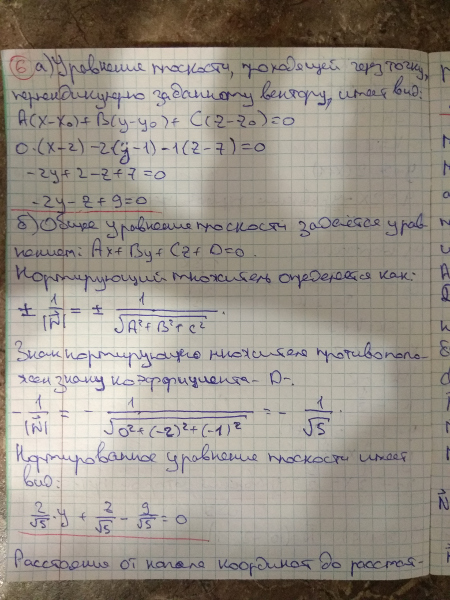 6 а) Уравнение плоскости, проходящей через точку,
перпендикулярно заданному вектору, имеет вид:
A(x-x₀)+B(y-y₀)+C(z-z₀)=0
0·(x-2)-2(y-1)-1(z-7)=0
-2y+2-z+7=0
-2y-z+9=0
б) Общее уравнение плоскости задаётся урав-
нением: Ax+By+Cz+D=0.
Нормирующий множитель определяется как:
± 1/|N⃗| = ± 1/√(A²+B²+C²).
Знак нормирующего множителя противополо-
жен знаку коэффициента -D-.
- 1/|N⃗| = - 1/√(0²+(-2)²+(-1)²) = - 1/√5.
Нормированное уравнение плоскости имеет
вид:
2/√5·y + z/√5 - 9/√5 = 0
Расстояние от начала координат до